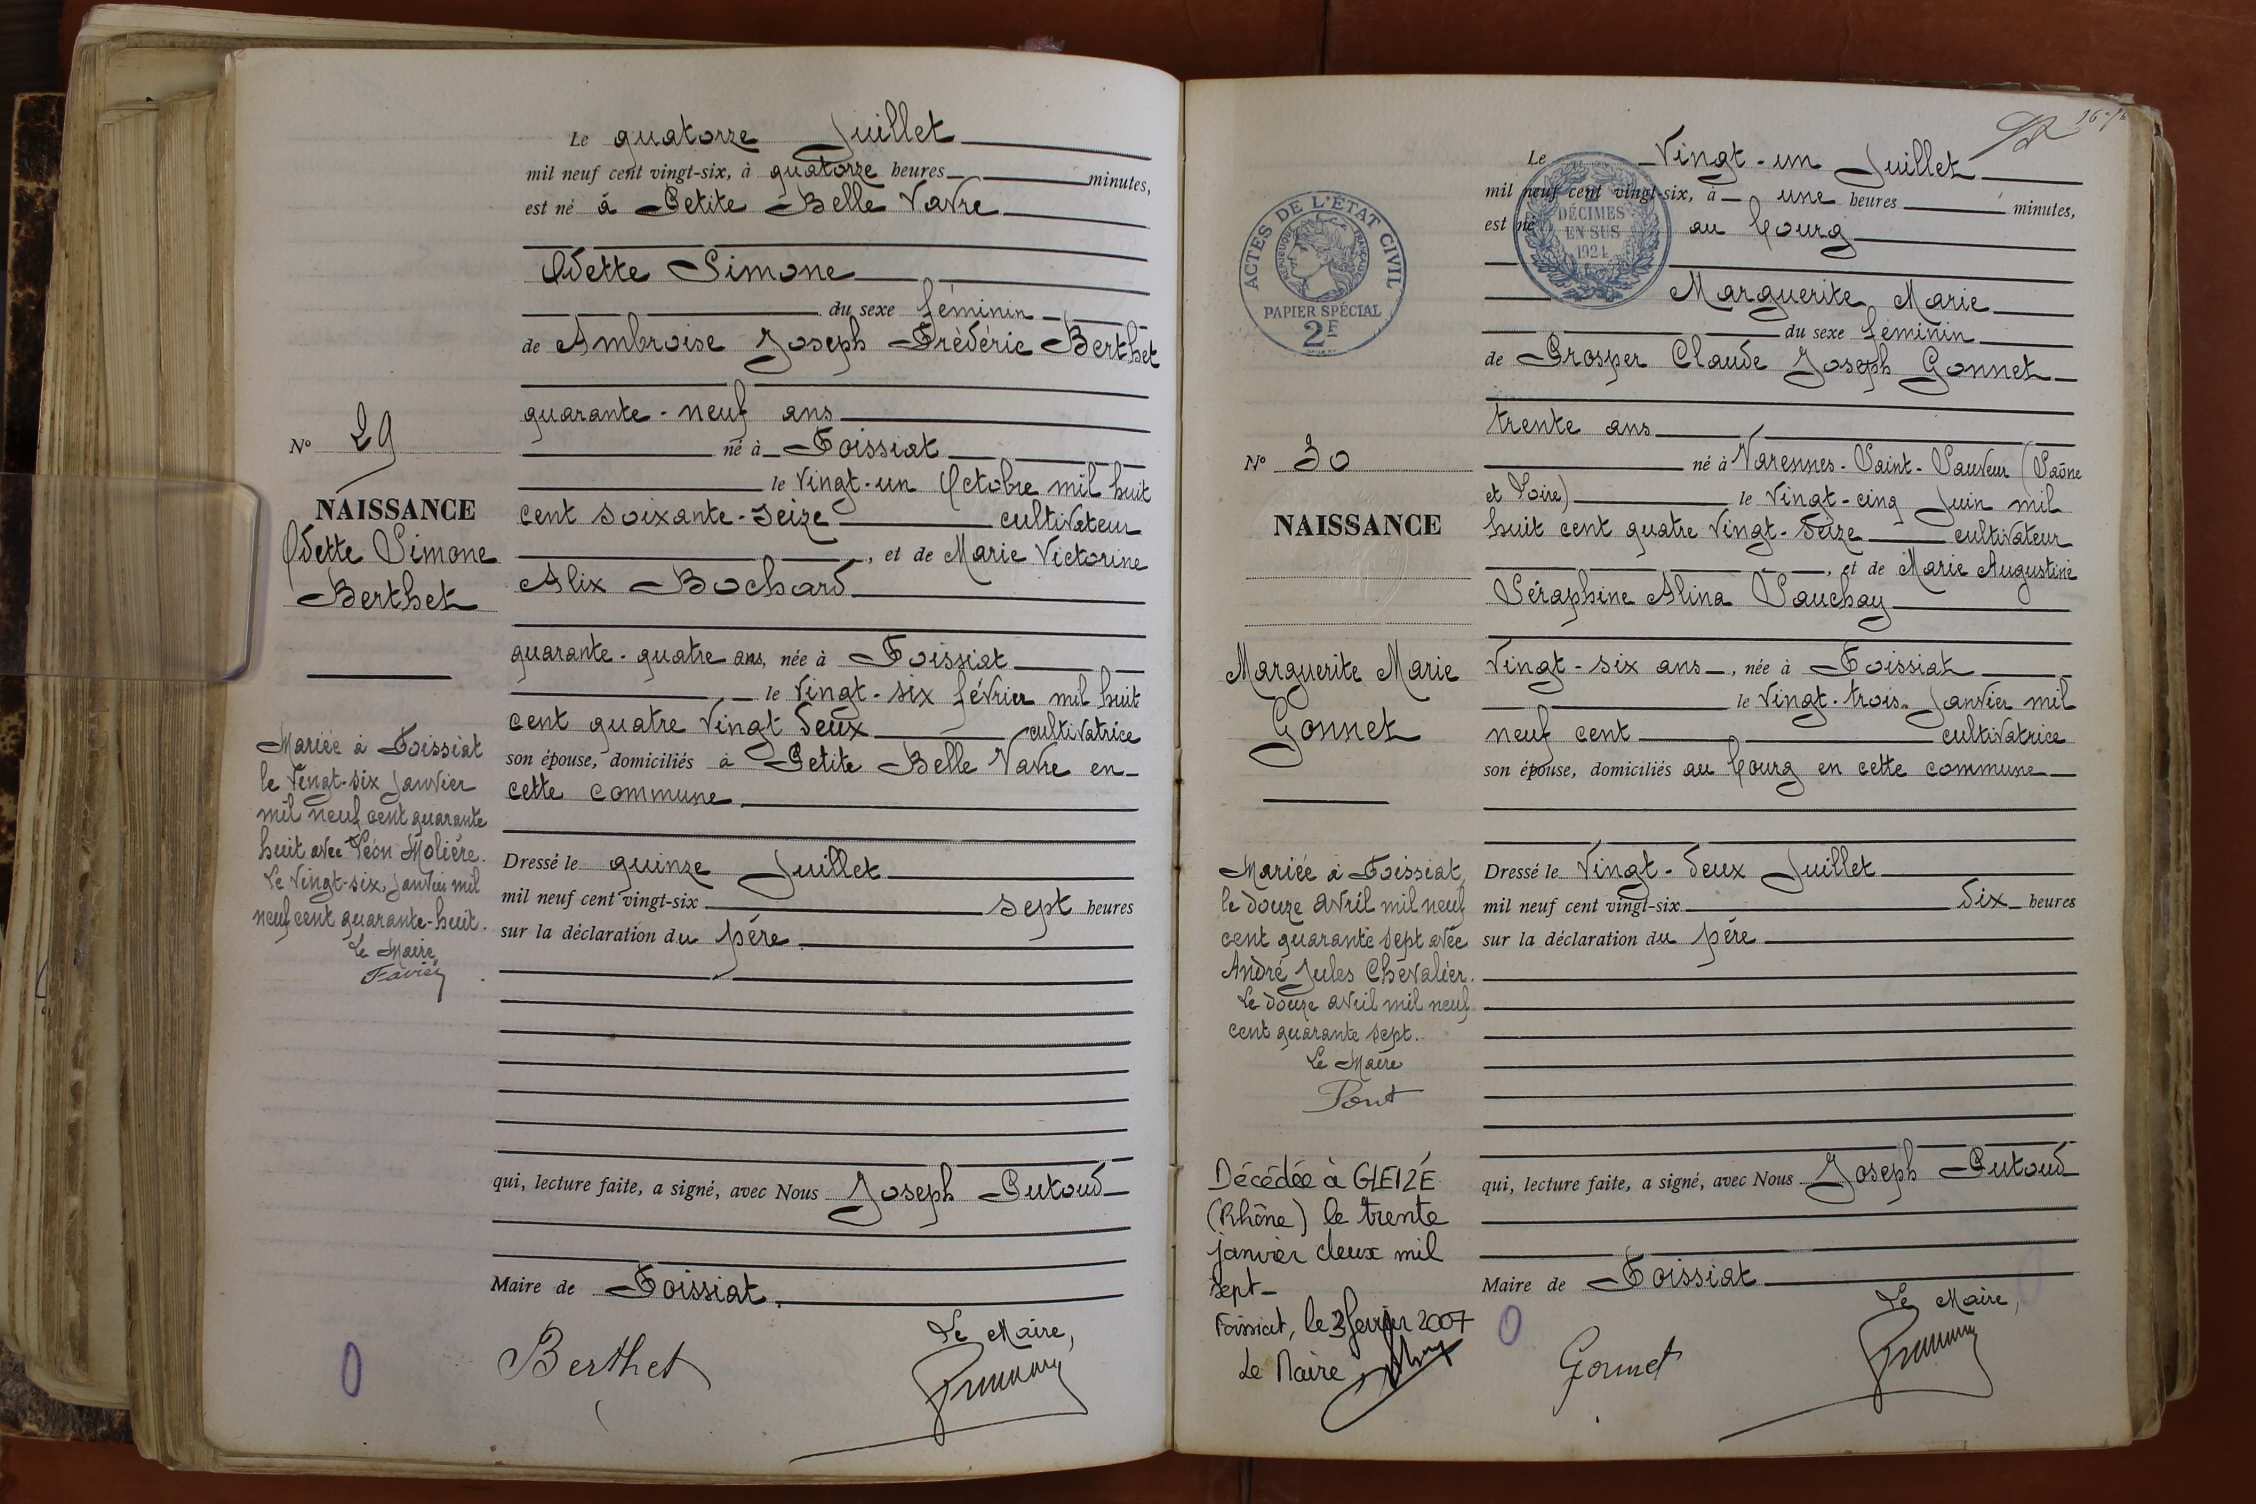 Le quatorze Juillet
mil neuf cent vingt-six, à quatorze heures minutes,
est né à Petite Belle Vavre
Odette Simone
du sexe féminin
de Ambroise Joseph Frédéric Berthet
quarante-neuf ans
né à Foissiat
le vingt-un Octobre mil huit
cent soixante-seize cultivateur
, et de Marie Victorine
Alix Bochard
quarante-quatre ans, née à Foissiat
le vingt-six février mil huit
cent quatre vingt deux cultivatrice
son épouse, domiciliés à Petite Belle Vavre en
cette commune.
Dressé le quinze Juillet
mil neuf cent vingt-six sept heures
sur la déclaration du père.
qui, lecture faite, a signé, avec Nous Joseph Putoud
Maire de Foissiat.
Le Maire,
Berthet
No 29
NAISSANCE
Odette Simone
Berthet
Mariée à Foissiat
le vingt-six Janvier
mil neuf cent quarante
huit avec Léon Molière.
Le vingt-six, Janvier mil
neuf cent quarante-huit.
Le Maire
Favier
0
Le Vingt-un Juillet
mil neuf cent vingt-six, à une heures minutes,
est né au bourg
Marguerite Marie
du sexe féminin
de Prosper Claude Joseph Gonnet
trente ans
né à Varennes-Saint-Sauveur (Saône
et Loire) le vingt-cinq Juin mil
huit cent quatre vingt-seize cultivateur
, et de Marie Augustine
Séraphine Alina Pauchay
Vingt-six ans, née à Foissiat
le vingt-trois Janvier mil
neuf cent cultivatrice
son épouse, domiciliés au bourg en cette commune
Dressé le Vingt-deux Juillet
mil neuf cent vingt-six dix heures
sur la déclaration du père
qui, lecture faite, a signé, avec Nous Joseph Putoud
Maire de Foissiat
Le Maire,
Gonnet
ACTES DE L'ÉTAT CIVIL
RÉPUBLIQUE FRANÇAISE
PAPIER SPÉCIAL
2F
DÉCIMES
EN SUS
1924
No 30
NAISSANCE
Marguerite Marie
Gonnet
Mariée à Foissiat,
le douze avril mil neuf
cent quarante sept avec
André Jules Chevalier.
Le douze avril mil neuf
cent quarante sept.
Le Maire
Pont
Décédée à GLEIZÉ
(Rhône) le trente
janvier deux mil
sept
Foissiat, le 3 février 2007
Le Maire,
0